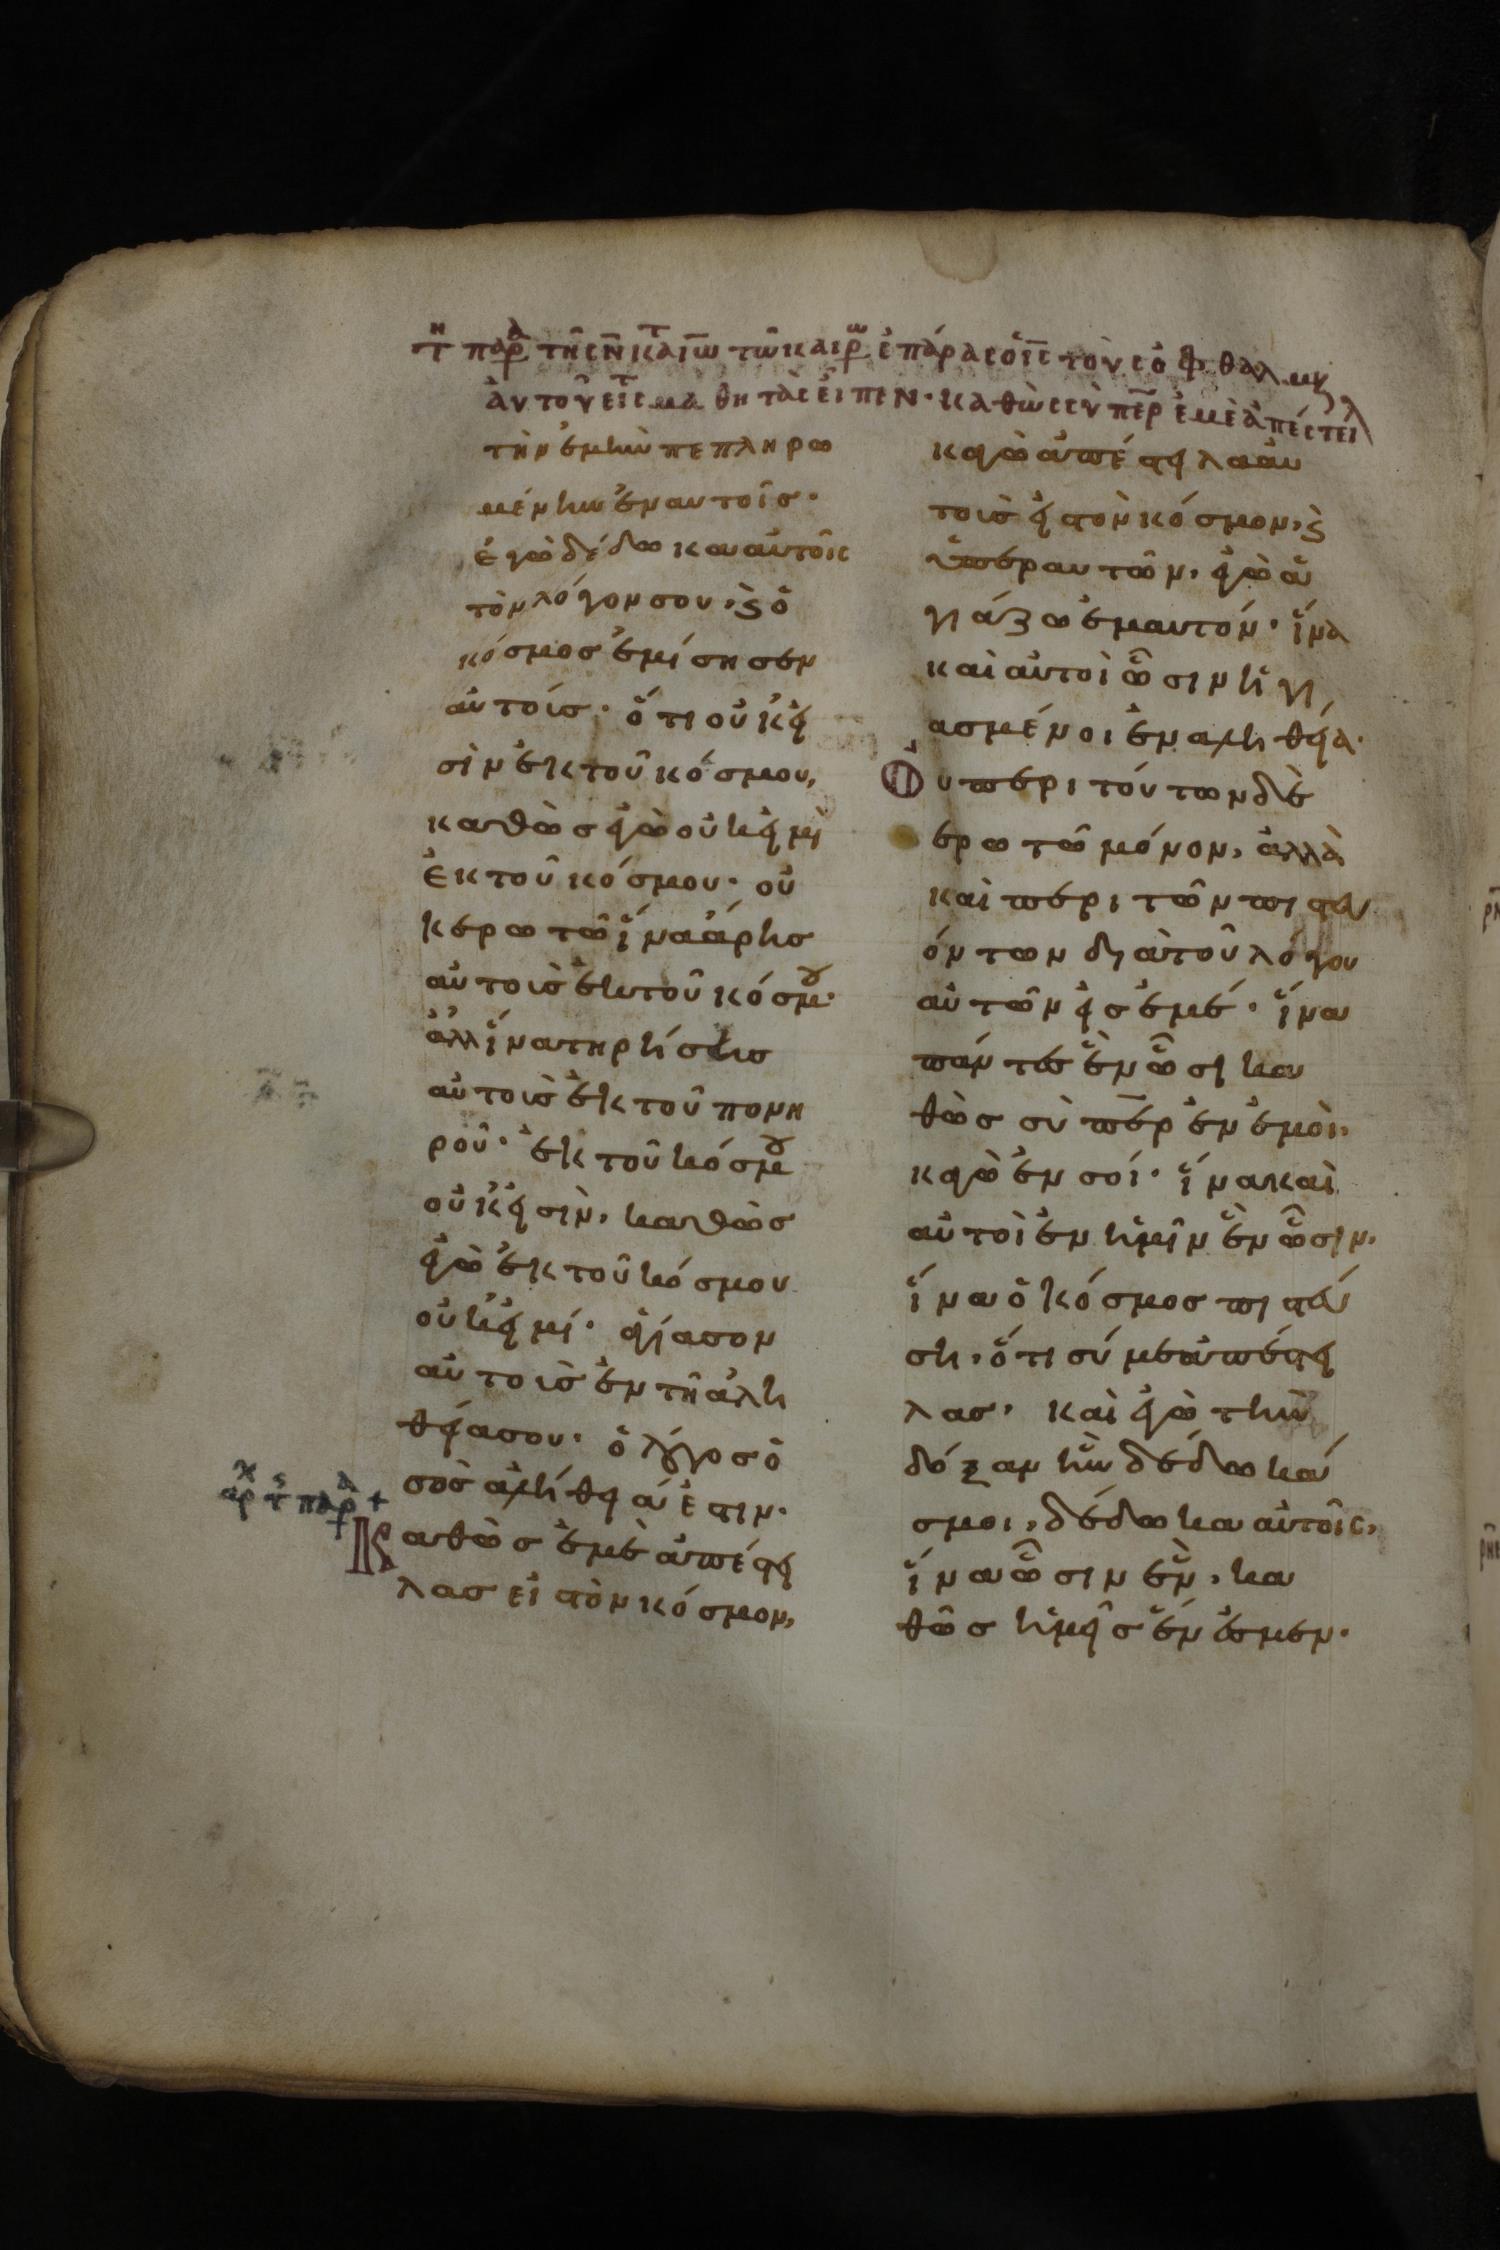 τῆ παρ τῆς ν κατ ιω τῶ καιρω ἐπάρας ὁ ις τοὺς ὀφθαλμους
αὐτοῦ εις τ μαθητὰς εἶπεν· καθὼς σὺ περ ἐμὲ ἀπέστειλ
τὴν ἐμὴν πεπληρω
μένην ἐν αυτοῖσ·
ἐγὼ δέδωκα αὐτοῖς
τὸν λόγον σου, ϗ ὁ
κόσμοσ ἐμίσησεν
αὐτοὺσ· ὅτι οὐκ εἰ
σὶν ἐκ τοῦ κόσμου,
καθὼσ ἐγὼ οὐκ εἰμὶ
ἐκ τοῦ κόσμου· οὐ
κ ερωτῶ ἵνα ἄρησ
αὐτοὺσ ἐκ τοῦ κόσμου·
ἀλλ ἵνα τηρήσησ
αὐτοὺσ ἐκ τοῦ πονη
ροῦ· ἐκ τοῦ κόσμου
οὐκ εἰσὶν, καθὼσ
ἐγὼ ἐκ τοῦ κόσμου
οὐκ εἰμί· ἁγίασον
αὐτοὺσ ἐν τῆ ἀλη
θείασου· ὁ λόγοσ ὁ
σὸσ ἀλήθειά ἐστιν·
αρχ τ παρ +
Καθὼσ ἐμὲ ἀπέστει
λασ εἰ στὸν κόσμον,
κἀγὼ ἀπέστειλα αὐ
τοὺσ εἰστὸν κόσμον, ϗ
ὑπὲραυτῶν, ἐγὼ ἁ
γιάζω ἐμαυτόν· ἵνα
καὶ αὐτοὶ ὦσιν ἡγι
ασμένοι ἐν αληθεία·
Οὐ περι τούτων δὲ
ερωτῶ μόνον, ἀλλὰ
καὶ περι τῶν πιστευ
όντων διὰτοῦ λόγου
αὐτῶν εἰσ ἐμέ· ἵνα
πάντεσ ἓν ὦσι κα
θὼσ σὺ περ ἐν ἐμοὶ,
κἀγὼ ἐν σοί· ἵνα καὶ
αὐτοὶ ἐν ἡμῖν ἓν ὦσιν,
ἵνα ὁ κόσμοσ πιστεύ
ση, ὅτι σύ με ἀπέστει
λασ, καὶ ἐγὼ τὴν
δόξαν ἣν δέδωκά
σμοι, δέδωκα αὐτοῖς,
ἵνα ὦσιν ἓν, κα
θὼσ ἡμεῖσ ἕν ἐσμεν·